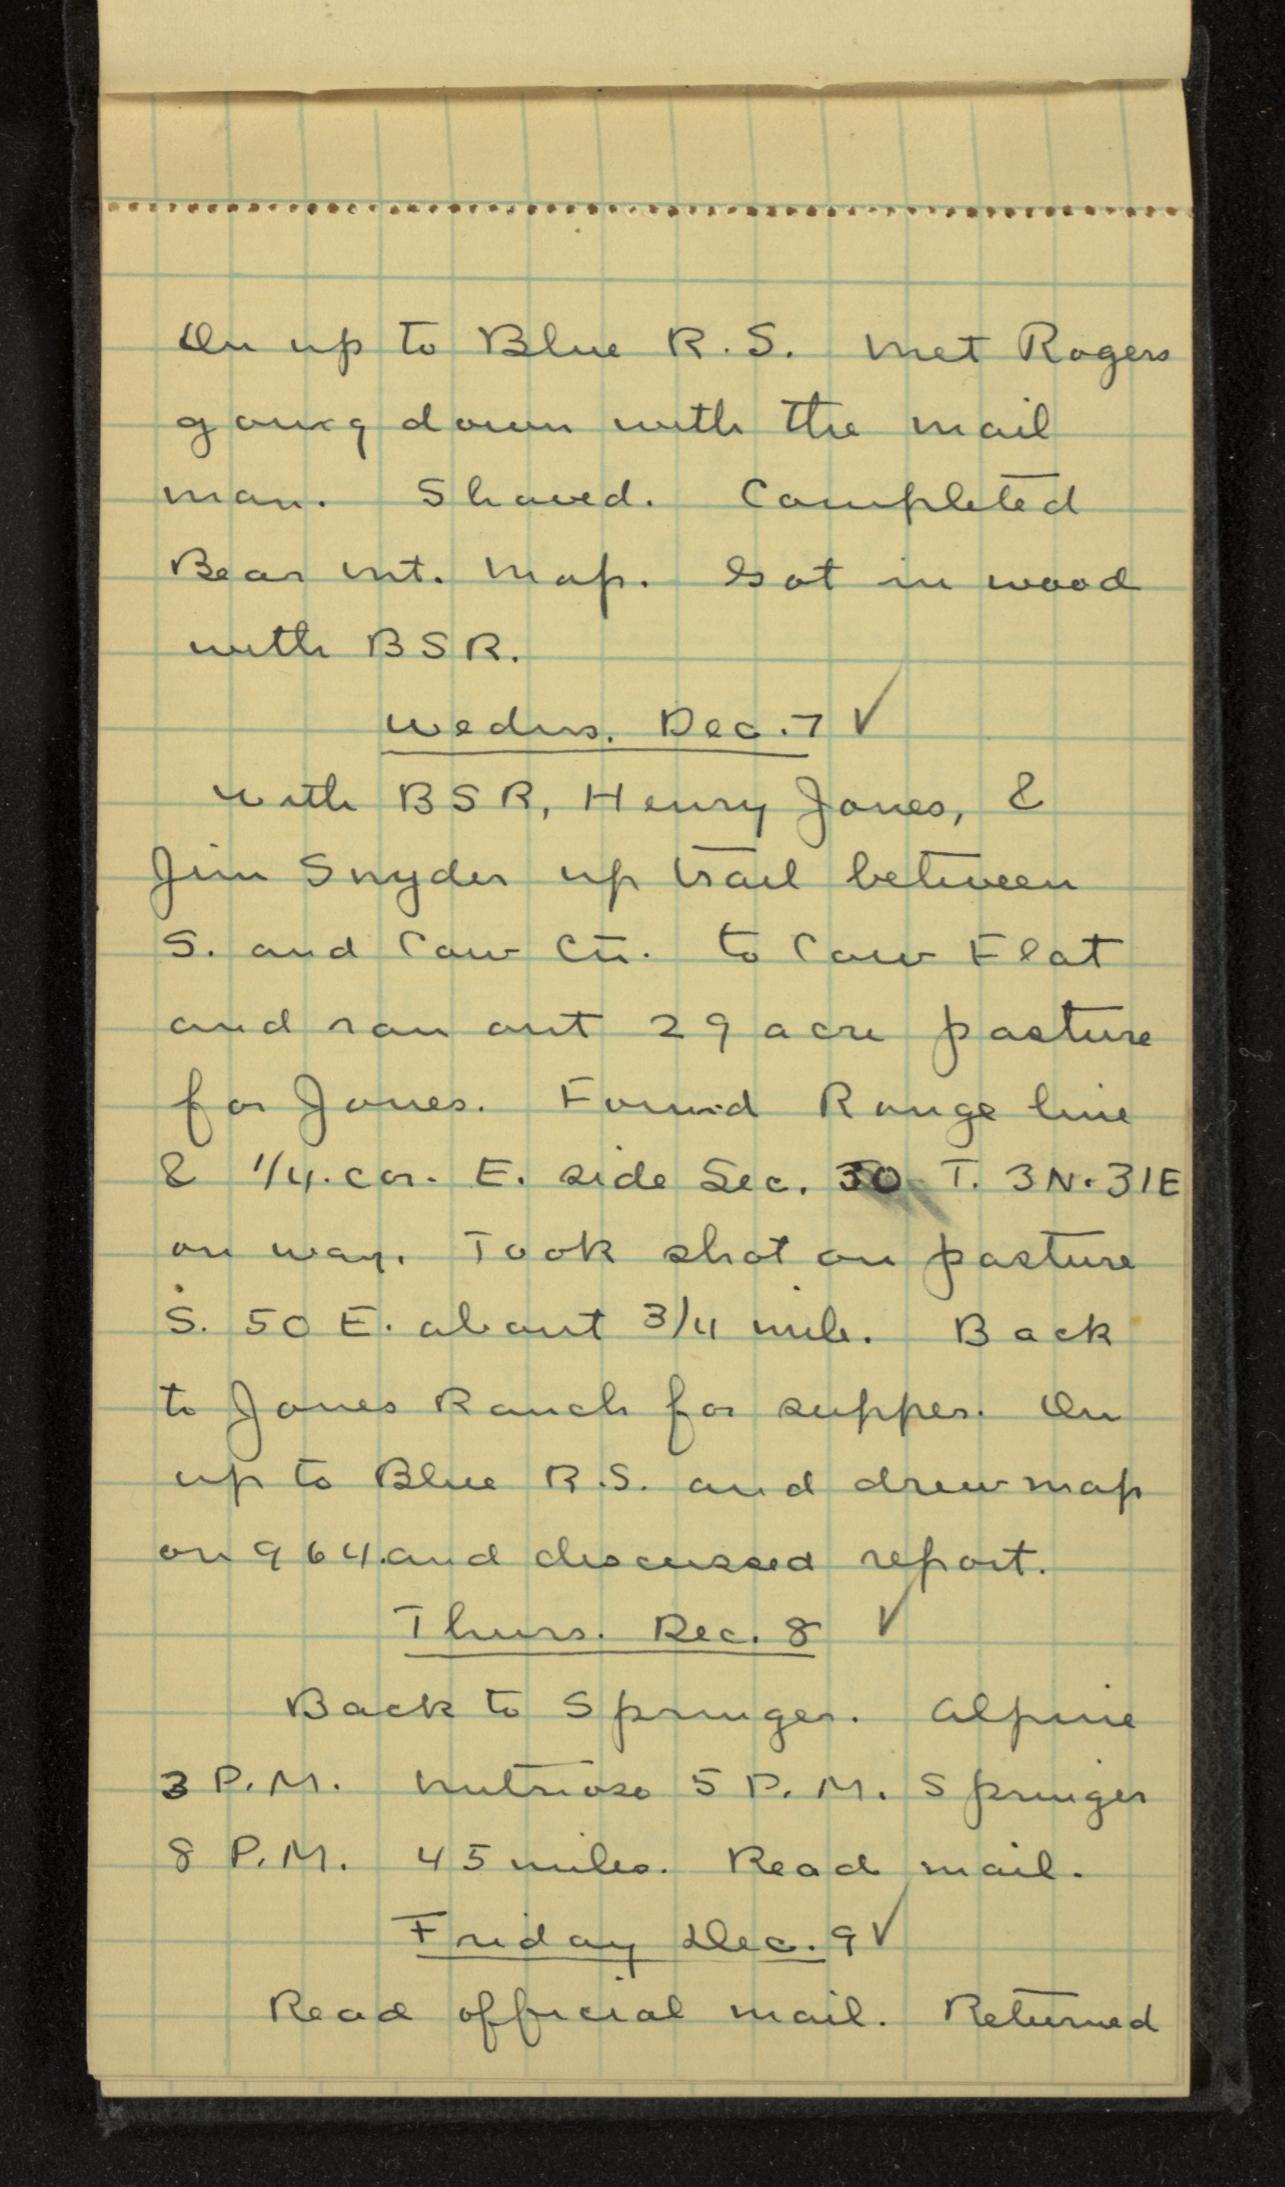 On up to Blue R.S. Met Rogers
going down with the mail
man. Shaved. Completed
Bear Mt. Map. Got in wood
with BSR.
Wedns. Dec. 7 ✓
With BSR, Henry Jones, &
Jim Snyder up trail between
S. and Cow Cn. to Cow Flat
and ran out 29 acre pasture
for Jones. Found Range line
& 1/4 cor. E. side Sec. 30 T. 3N. 31E
on way. Took shot on pasture
S. 50 E. about 3/4 mile. Back
to Jones Ranch for supper. On
up to Blue R.S. and drew map
on 964 and discussed report.
Thurs. Dec. 8 ✓
Back to Springer. Alpine
3 P.M. Nutrioso 5 P.M. Springer
8 P.M. 45 miles. Read mail.
Friday Dec. 9 ✓
Read official mail. Returned